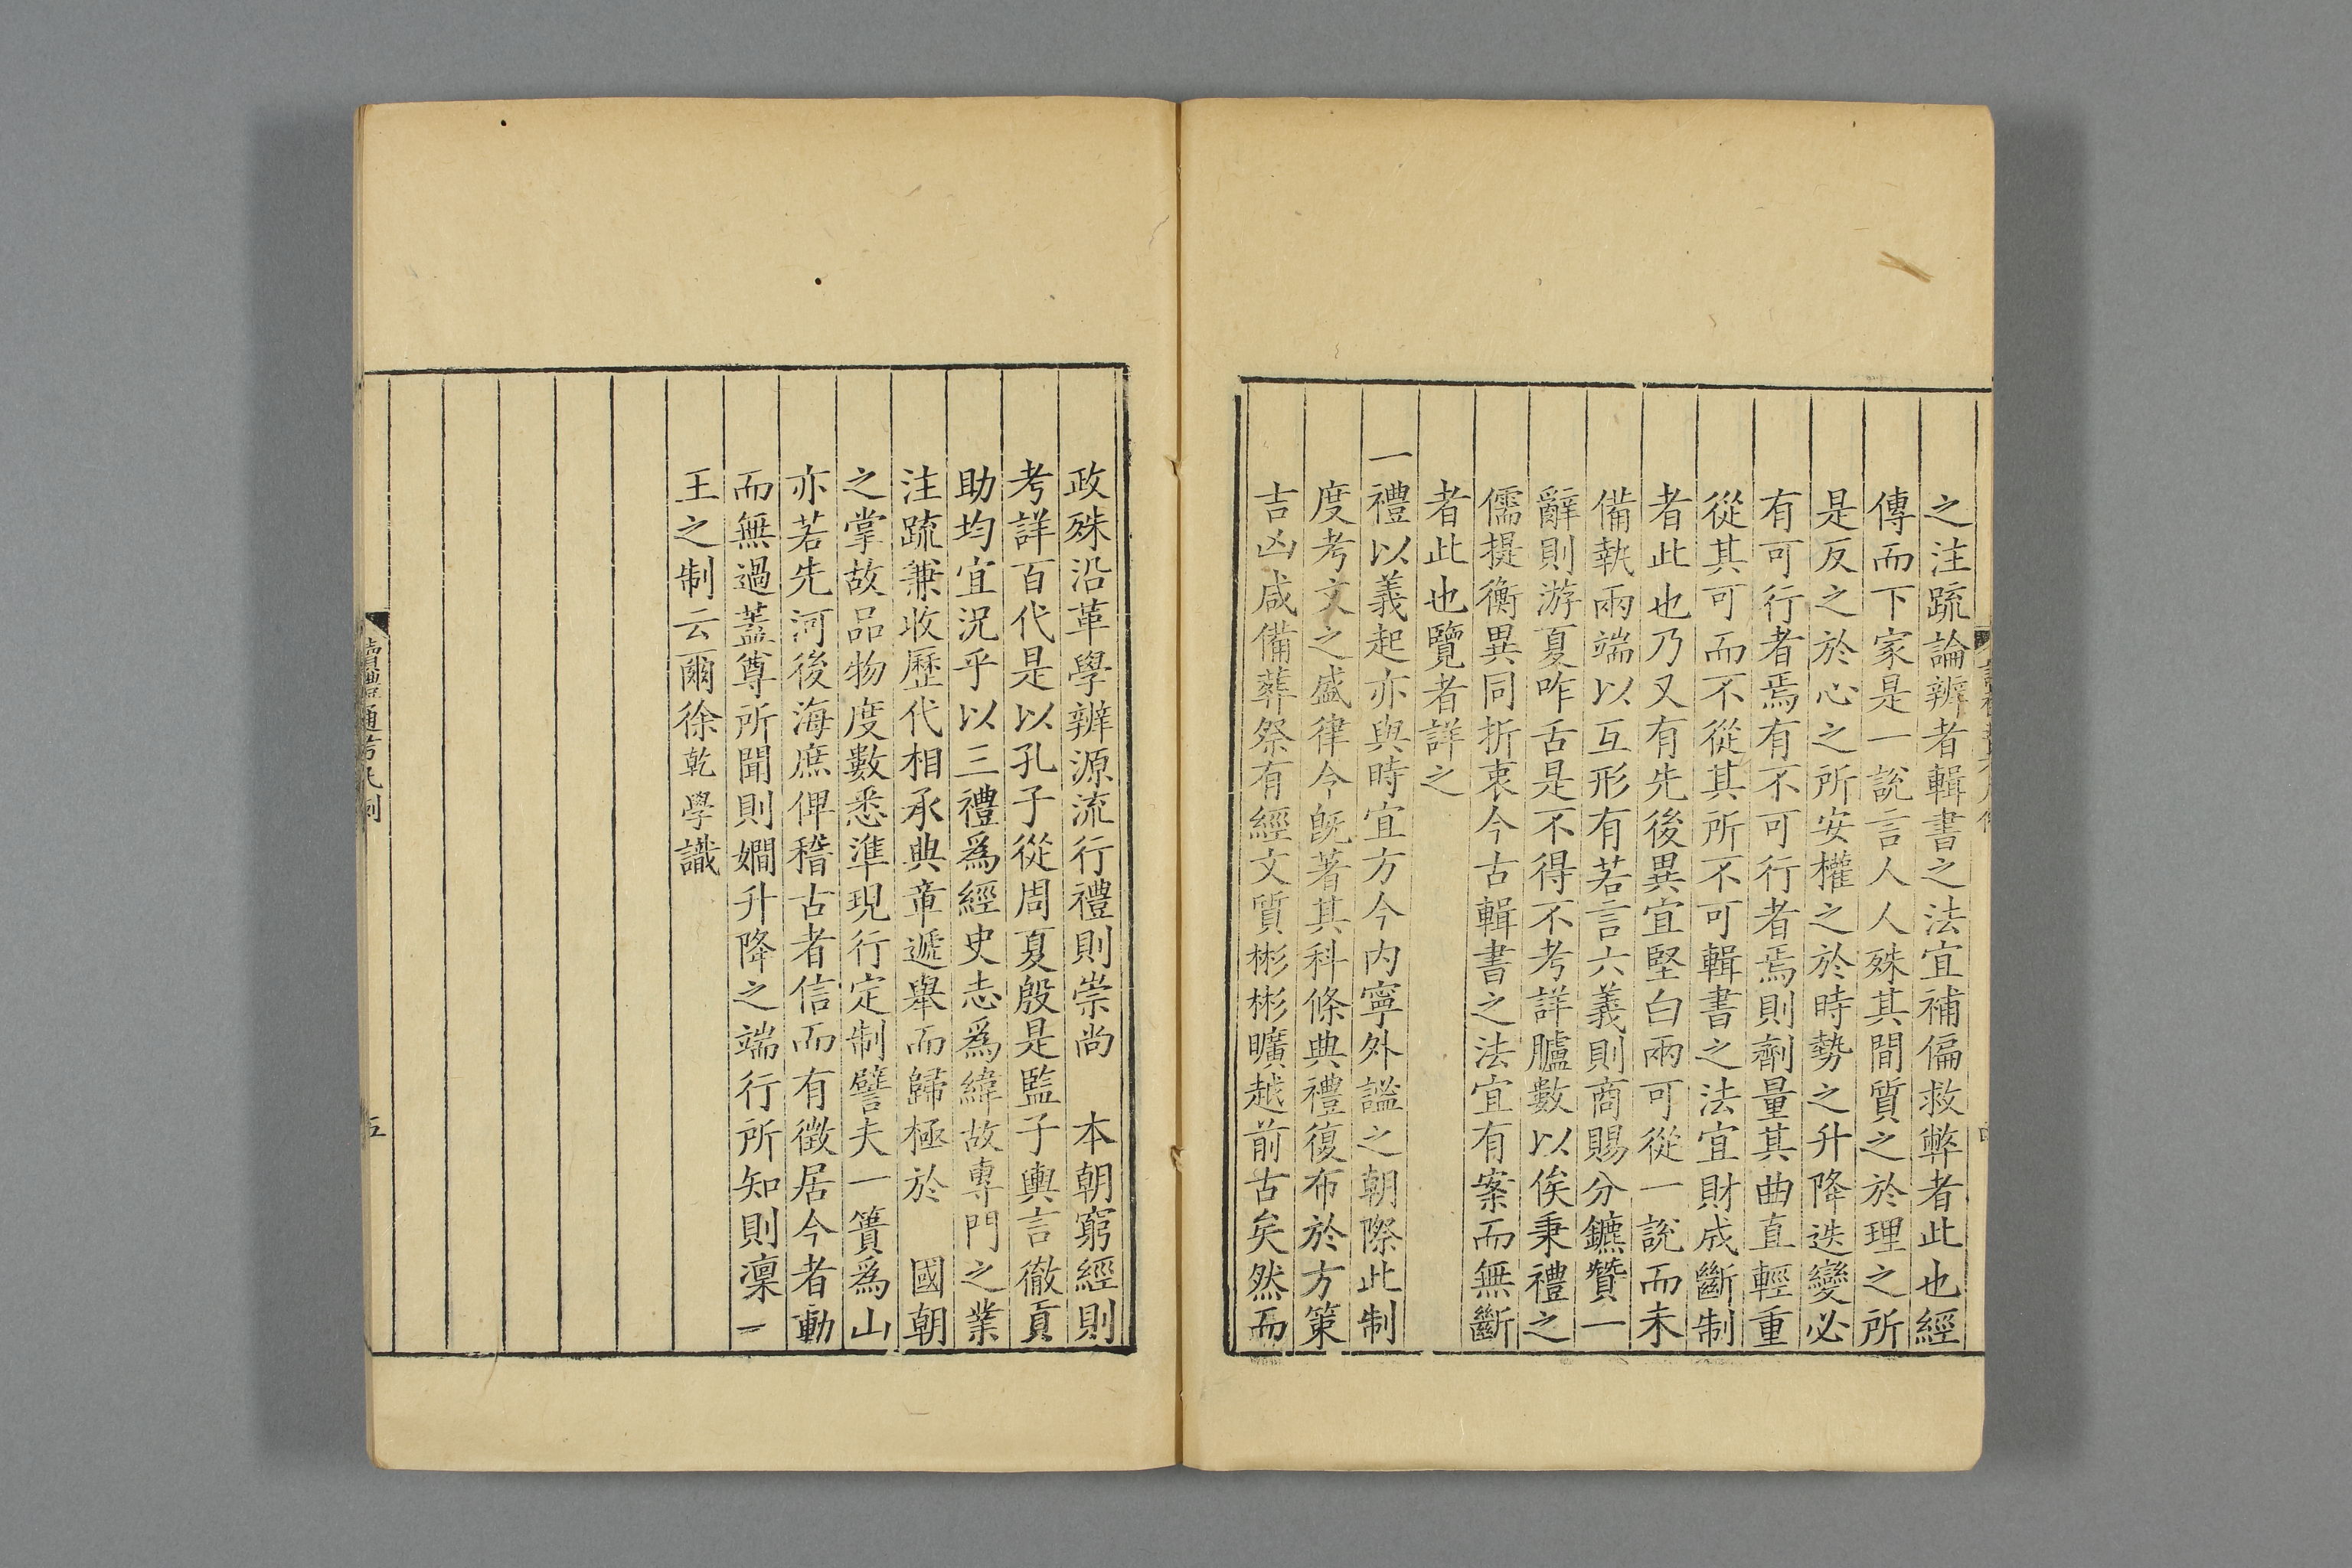 之注疏論辨者輯書之法宜補偏救弊者此也經
傳而下家是一說言人人殊其間質之於理之所
是反之於心之所安權之於時勢之升降迭變必
有可行者焉有不可行者焉則劑量其曲直輕重
從其可而不從其所不可輯書之法宜財成斷制
者此也乃又有先後異宜堅白兩可從一說而未
備執兩端以互形有若言六義則商賜分鑣贊一
辭則游夏咋舌是不得不考詳臚數以俟秉禮之
儒提衡異同折衷今古輯書之法宜有案而無斷
者此也覽者詳之
一禮以義起亦與時宜方今內寧外謐之朝際此制
度考文之盛律令既著其科條典禮復布於方策
吉凶咸備葬祭有經文質彬彬曠越前古矣然而
政殊沿革學辨源流行禮則崇尚 本朝窮經則
考詳百代是以孔子從周夏殷是監子輿言徹貢
助均宜況乎以三禮爲經史志爲緯故專門之業
注疏兼收歷代相承典章遞舉而歸極於 國朝
之掌故品物度數悉準現行定制譬夫一簣爲山
亦若先河後海庶俾稽古者信而有徵居今者動
而無過蓋尊所聞則嫺升降之端行所知則凜一
王之制云爾徐乾學識
讀禮通考凡例
五